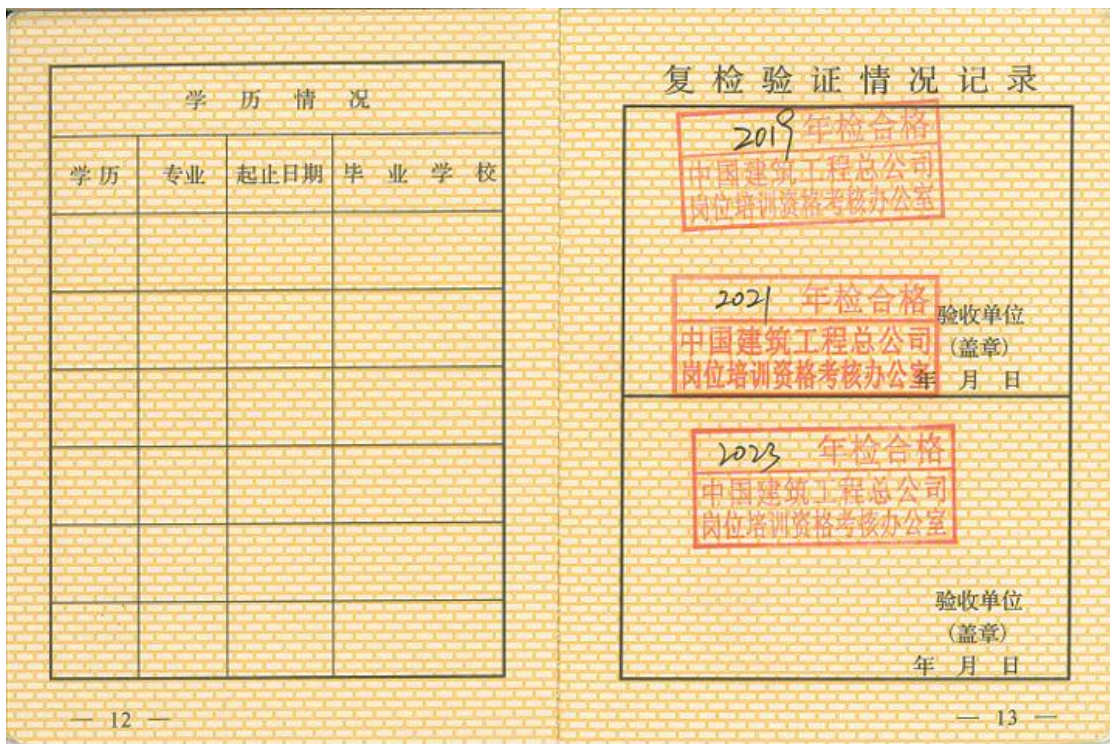 学历情况
学历 专业 起止日期 毕业学校
— 12 —
复检验证情况记录
2019 年检合格
中国建筑工程总公司
岗位培训资格考核办公室
2021 年检合格
中国建筑工程总公司
岗位培训资格考核办公室
验收单位
(盖章)
年 月 日
2023 年检合格
中国建筑工程总公司
岗位培训资格考核办公室
验收单位
(盖章)
年 月 日
— 13 —